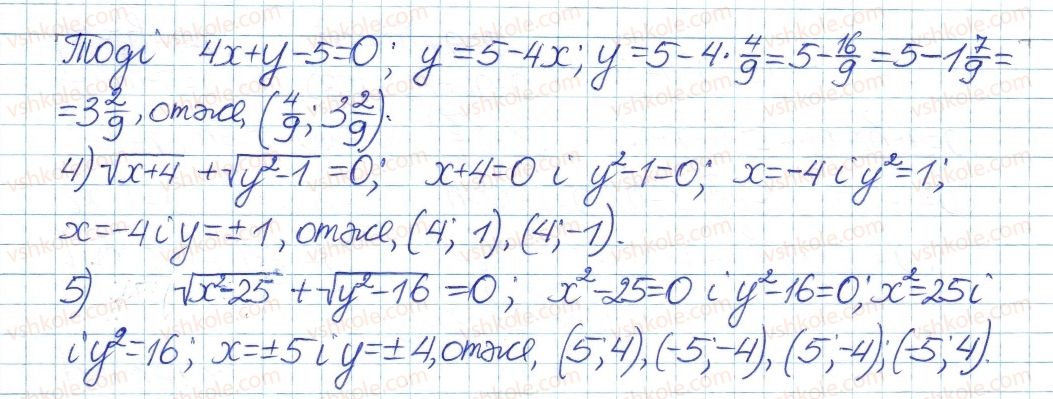 Тоді 4x+y-5=0; y=5-4x; y=5-4·4/9=5-16/9=5-1 7/9=
=3 2/9, отже, (4/9; 3 2/9).
4) √(x+4) + √(y²-1) =0; x+4=0 і y²-1=0; x=-4 і y²=1;
x=-4 і y=±1, отже, (4; 1), (4;-1).
5) √(x²-25) + √(y²-16) =0; x²-25=0 і y²-16=0; x²=25 і
і y²=16; x=±5 і y=±4, отже, (5;4), (-5;-4), (5;-4); (-5;4).